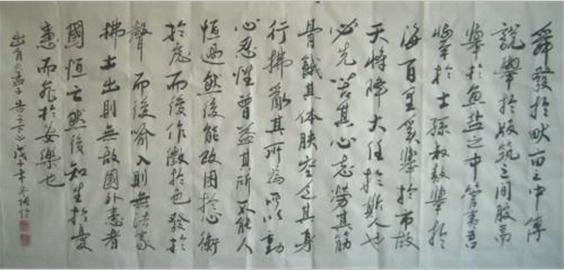 舜發於畎畝之中傅
說舉於版筑之間膠鬲
舉於魚鹽之中管夷吾
舉於士孫叔敖舉於
海百里奚舉於市故
天將降大任於斯人也
必先苦其心志勞其筋
骨餓其體膚空乏其身
行拂亂其所為所以動
心忍性曾益其所不能人
恒過然後能改困於心衡
於慮而後作徵於色發於
聲而後喻入則無法家
拂士出則無敵國外患者
國恒亡然後知生於憂
患而死於安樂也
孟子告子下戊子年冬